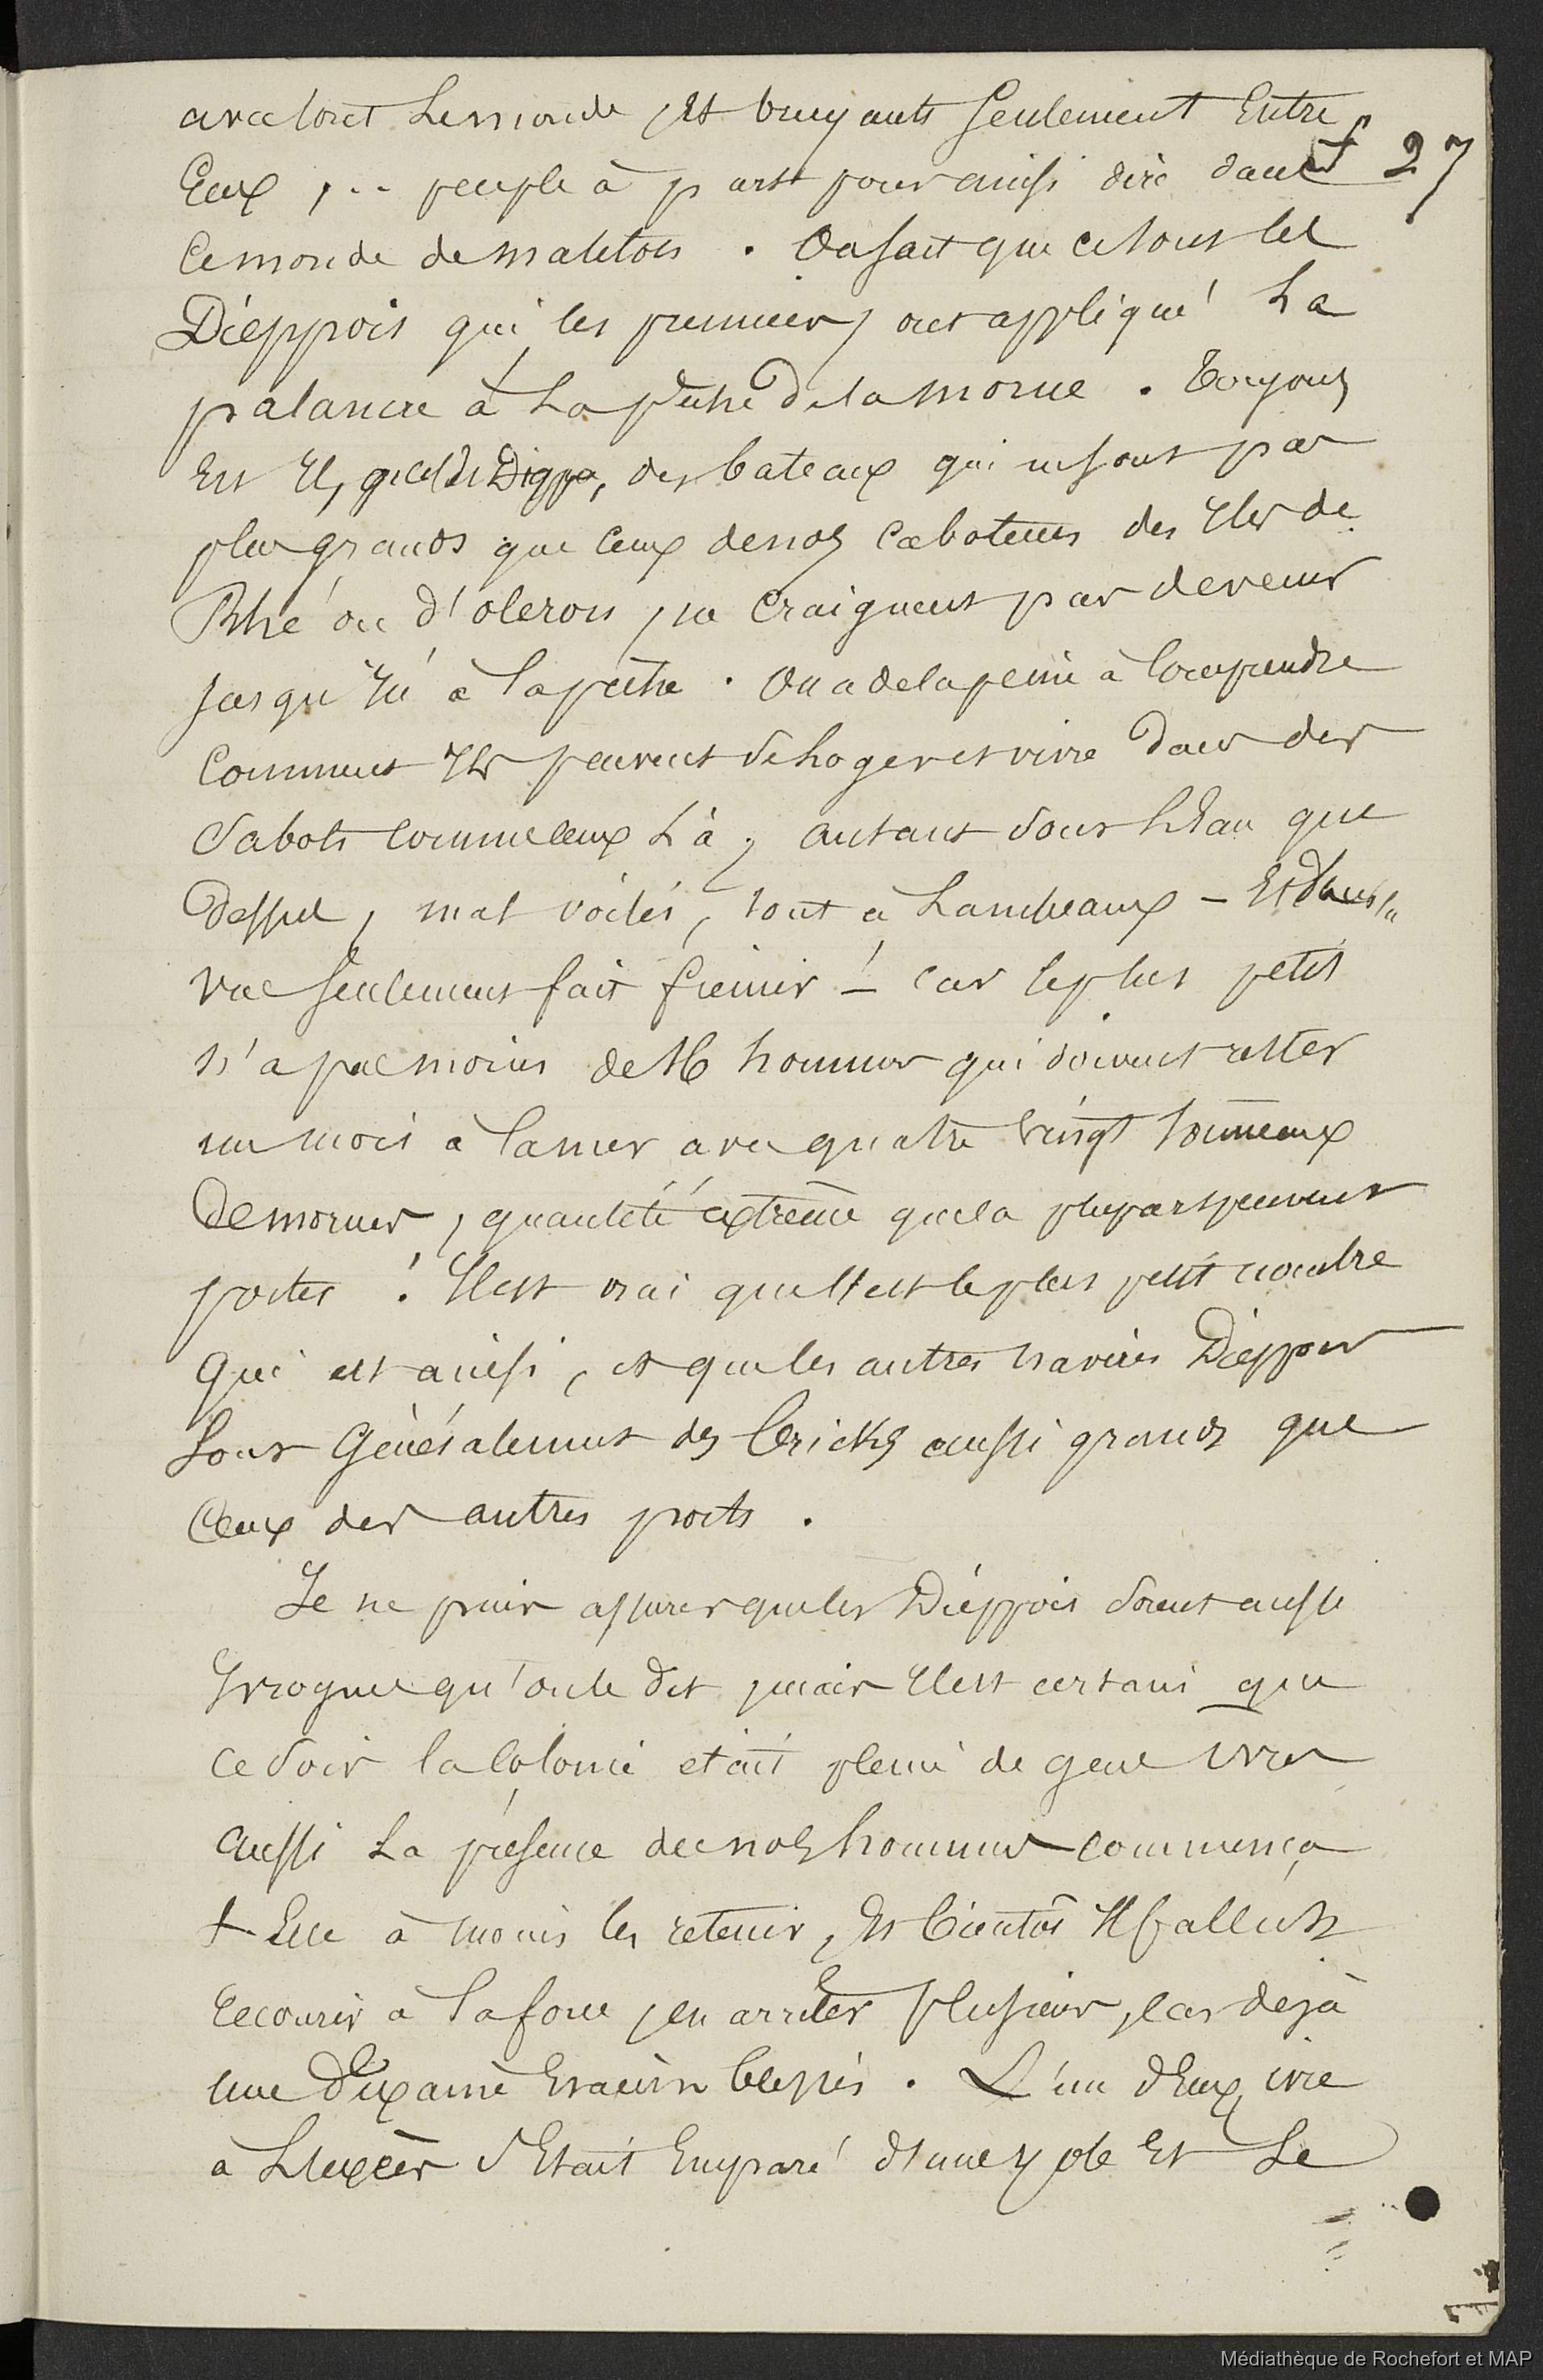 avec tout Le monde, Et bruyants Seulement Entre
Eux, .. peuple à part pour ainsi dire dans
f 27
Ce monde de matelots . On sait que ce sont les
Dieppois qui, les premiers, ont appliqué La
palancre à La pêche De la morue . Toujours
Est Il, que de Dieppe, des bateaux qui ne sont pas
plus grands que Ceux de nos Caboteurs des Iles de
Rhé ou d'oleron, ne Craignent pas de venir
Jusqu'Ici à la pêche . On a de la peine à Comprendre
Comment Ils peuvent Se Loger et vivre Dans des
Sabots Comme Ceux Là, autant Sous L'Eau que
Dessus, mal voilés, tout à Lambeaux - Et dont la
vue Seulement fait frémir ! - Car le plus petit
N'a pas moins de 16 hommes qui doivent rester
un mois à la mer avec quatre Vingt tonneaux
De morues, quantité extrême que la plupart peuvent
porter ! Il est vrai que C'est le plus petit nombre
Qui est ainsi, et que les autres Navires Dieppois
Sont Généralement des Bricks aussi grands que
Ceux des autres ports .
Je ne puis assurer que les Dieppois Soient aussi
Ivrognes qu'on le dit, mais Il est certain que
Ce Soir la Colonie était pleine de gens Ivres
Aussi La présence de nos hommes commença
t Elle à moins les retenir, Et bientôt Il fallut
Recourir à La force, en arrêter plusieurs, car déjà
Une Dixaine Etaient blessés . L'un d'Eux, ivre
à L'Excès S'Etait Emparé d'une yole Et Se
Médiathèque de Rochefort et MAP